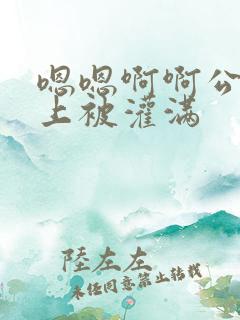 嗯嗯啊啊公
上被灌满
陸左左
未经同意禁止转载